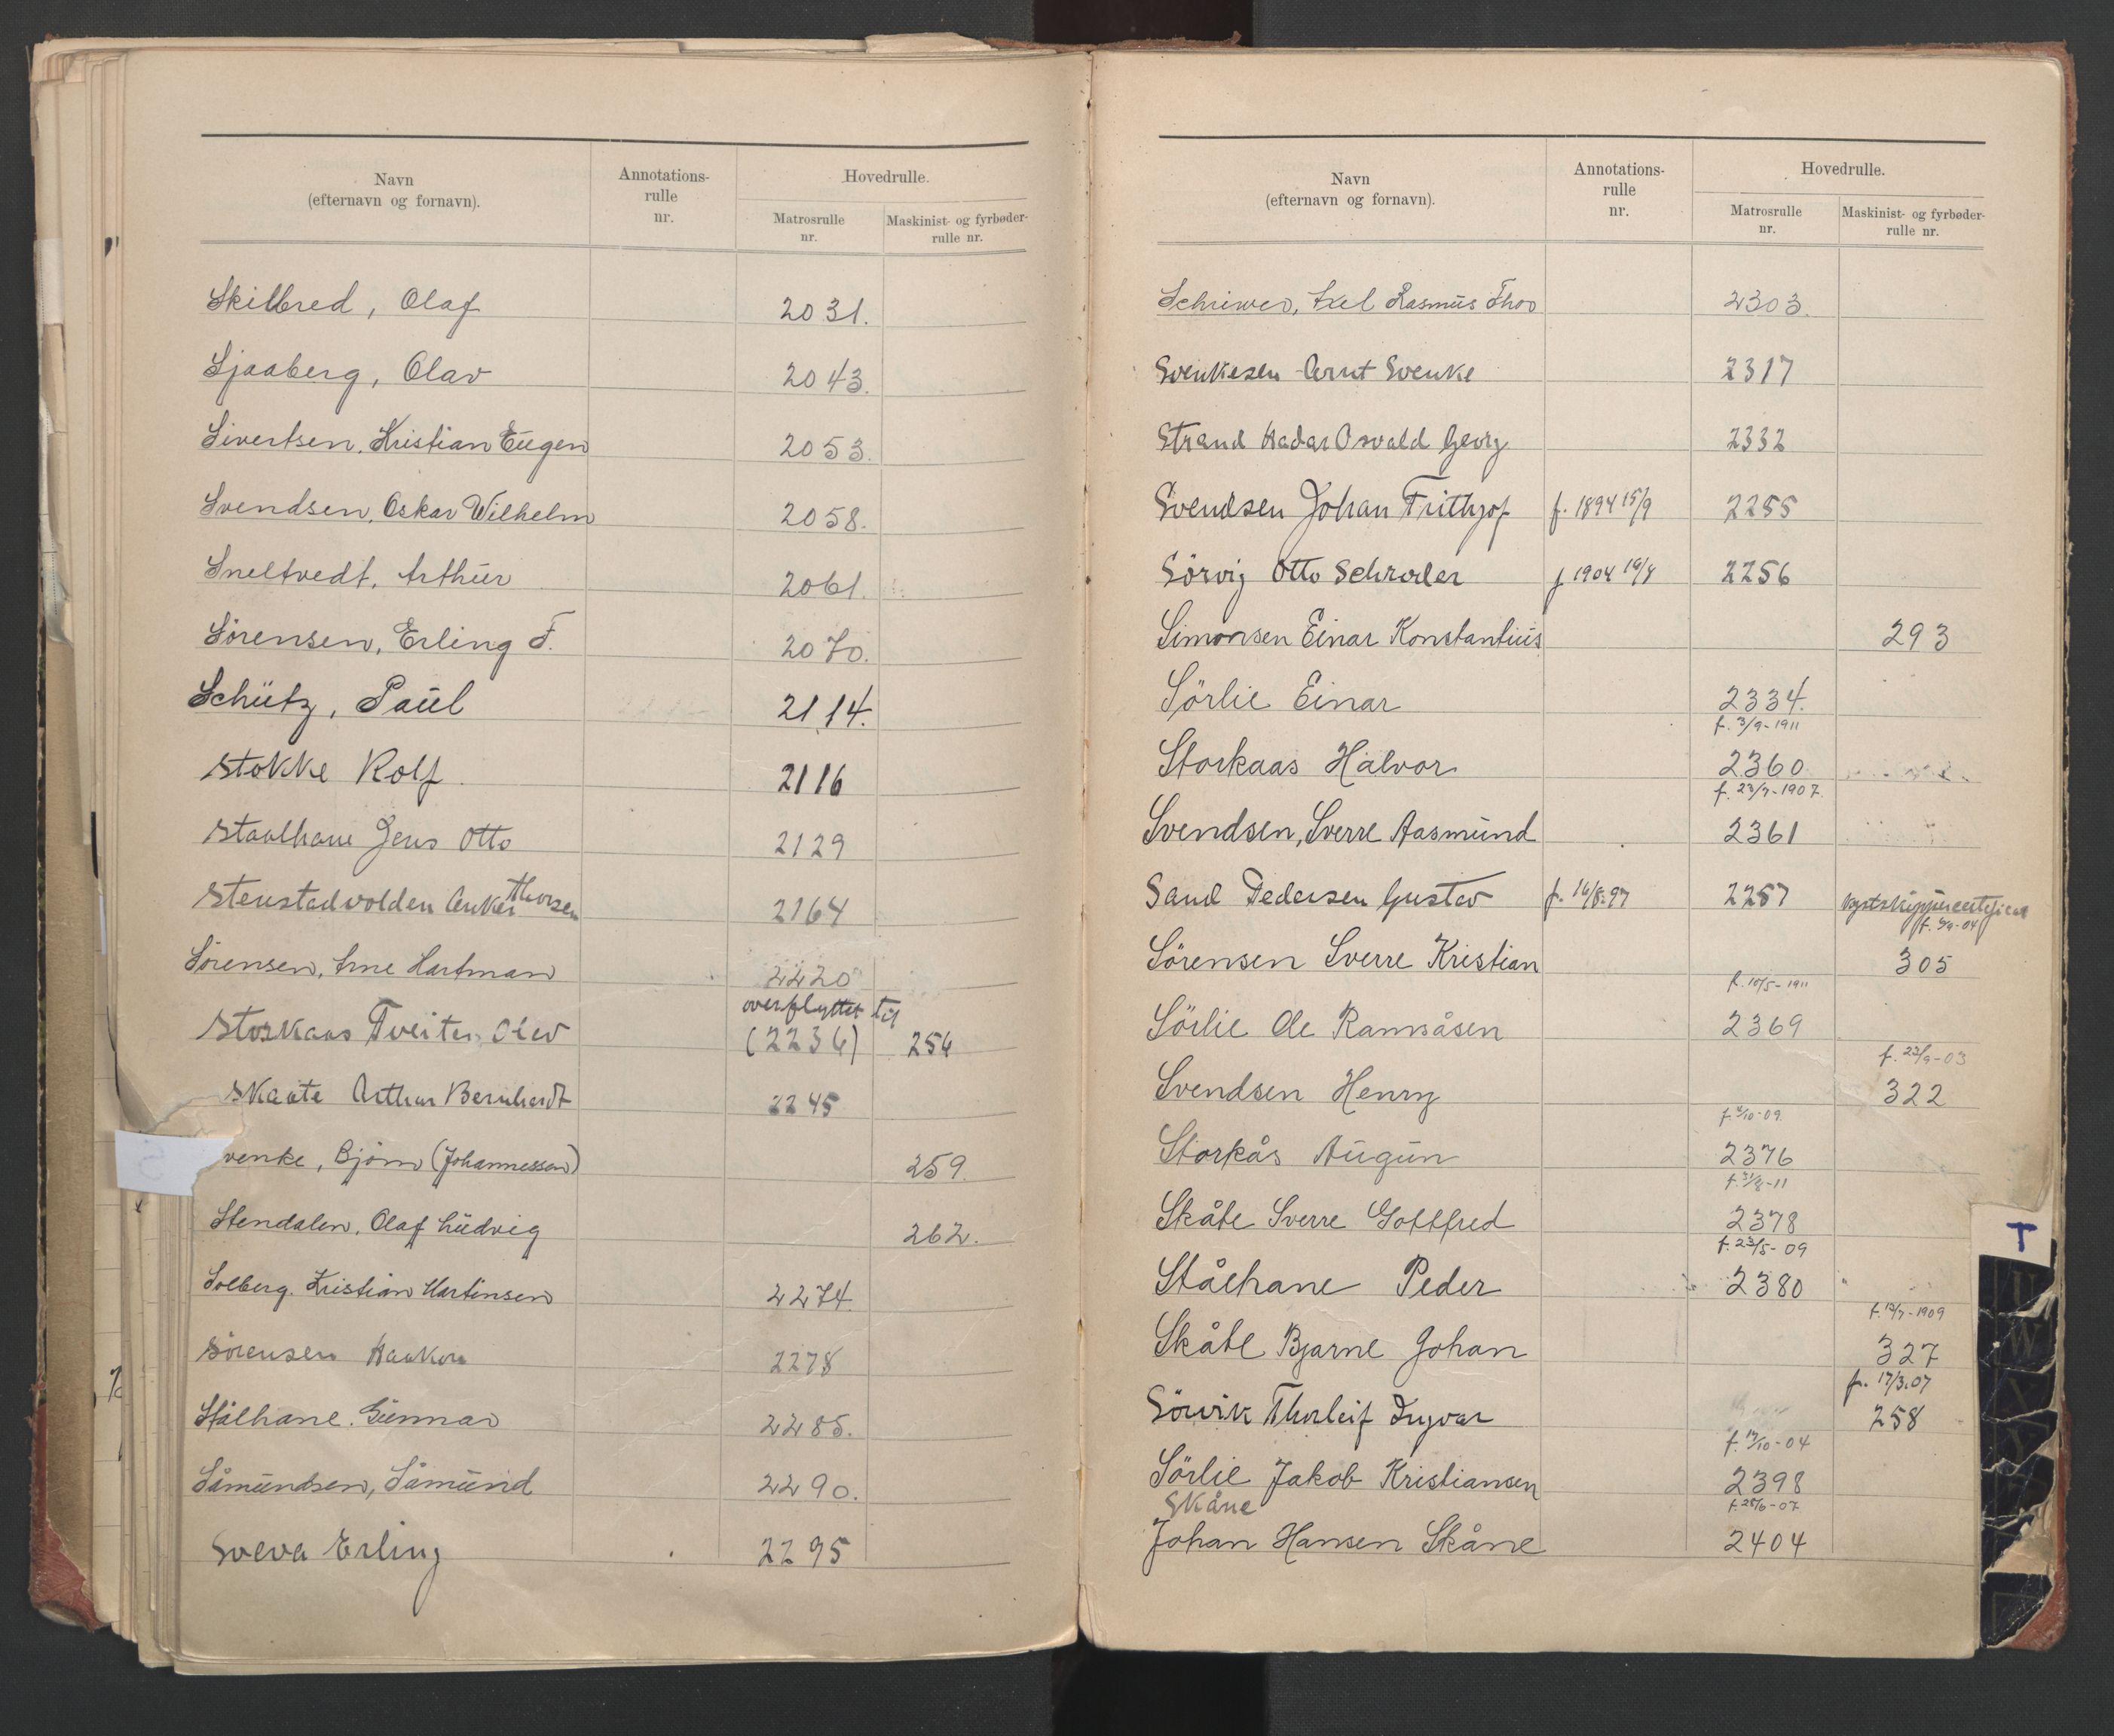 Navn
(efternavn og fornavn).
Annotations-
rulle
nr.
Hovedrulle.
Matrosrulle
nr.
Maskinist- og fyrbøder-
rulle nr.
Skilbred, Olaf 2031.
Sjaaberg, Olav 2043.
Sivertsen, Kristian Eugen 2053.
Svendsen, Oskar Wilhelm 2058.
Sneltvedt, Arthur 2061.
Sørensen, Erling F. 2070.
Schütz, Paul 2114.
Stokke Rolf. 2116
Staalhane Jens Otto 2129
Thorsen
Stenstadvolden Anker 2164
Sørensen, Arne Hartman 2220
overflyttet til
Storkaas Tveiten Olav (2236) 254
Skaate Arthur Bernhardt 2245
venke, Bjørn (Johannessen) 259.
Stendalen, Olaf Ludvig 262.
Solberg. Kristian Martinsen 2274.
Sörensen Haakon 2278
Stålhane. Gunnar 2285.
Såmundsen, Såmund 2290.
Sveva Erling 2295
Navn
(efternavn og fornavn).
Annotations-
rulle
nr.
Hovedrulle.
Matrosrulle
nr.
Maskinist- og fyrbøder-
rulle nr.
Schriwer, Axel Rasmus Thor 2303.
Svenkesen Arnt Svenke 2317
Strand Hadar Osvald Georg 2332
Svendsen Johan Frithjof f. 1894 15/9 2255
Sörvig Otto Schrøder f 1904 2256
Simonsen Einar Konstantius 293
Sörlie Einar 2334.
f. 3/9-1911
Storkaas Halvor 2360
f. 23/7-1907.
Svendsen, Sverre Aasmund 2361
Sand Pedersen Gustav f. 16/8.97 2257 kystskippercertificat
Sörensen Sverre Kristian 305
f. 10/5-1911
Sörlie Ole Ramsåsen 2369
f. 23/9-03
Svendsen Henry 322
Storkås Augun 2376
Skåte Sverre Gottfred 2378
f. 23/5-09
Stålhane Peder 2380
f. 13/7-1909
Skåte Bjarne Johan 327
f. 17/3.07
Sörvik Thorleif Ingvar 258
f. 19/10-04
Sörlie Jakob Kristiansen 2398
Skåne f. 25/6-07
Johan Hansen Skåne 2404
T